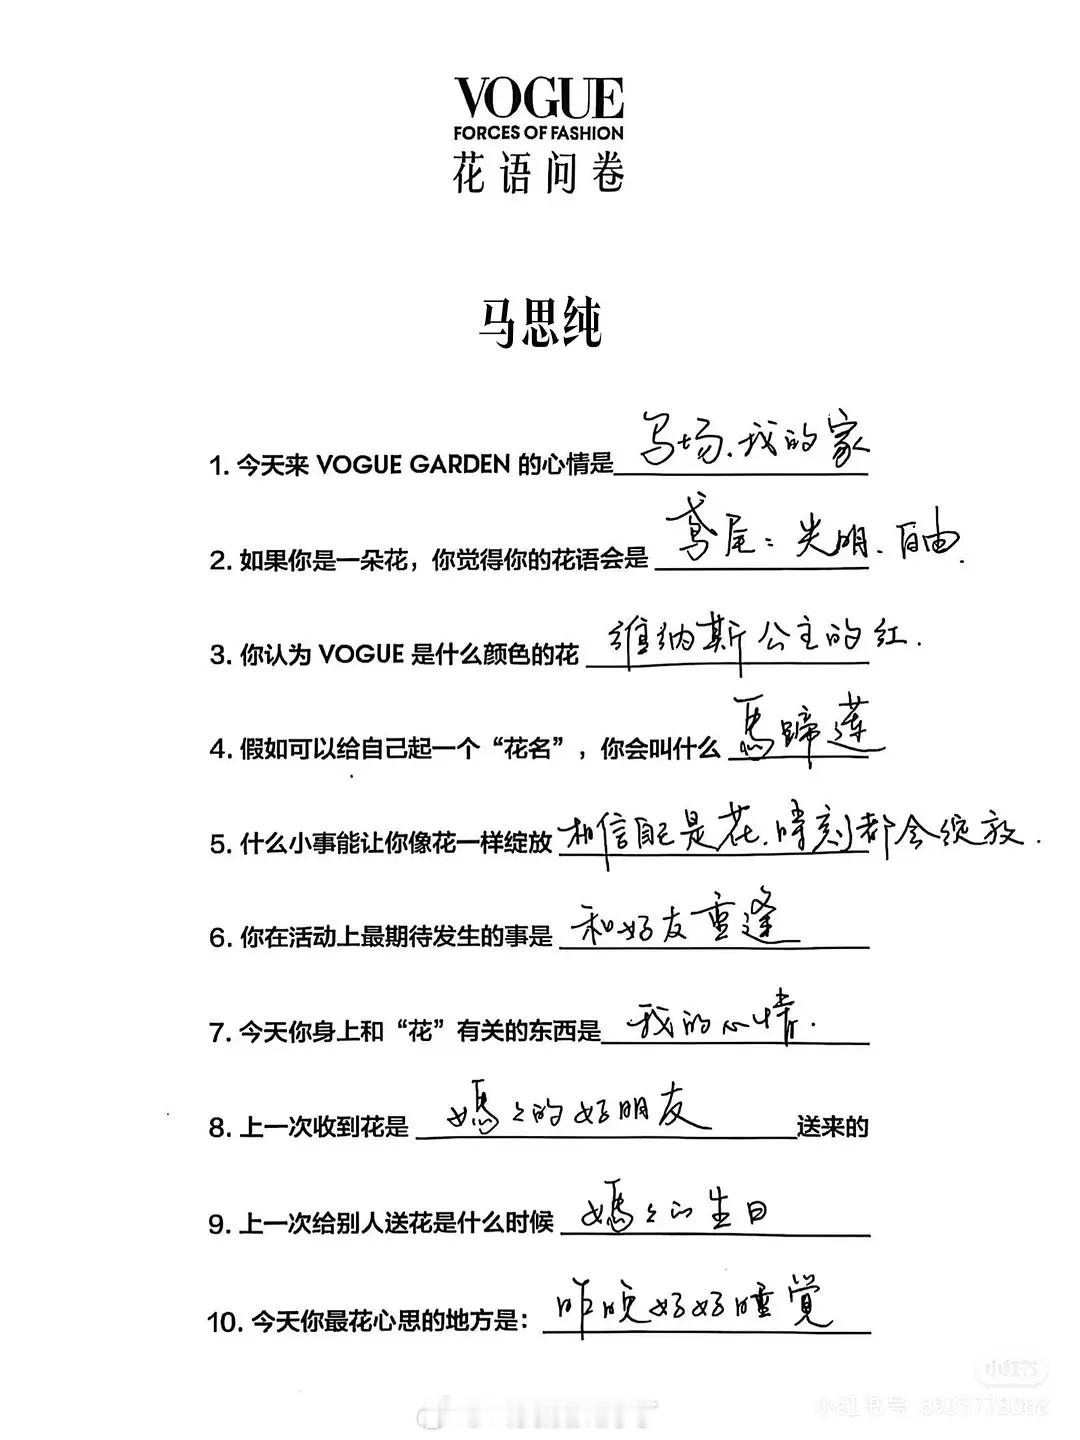 VOGUE
FORCES OF FASHION
花语问卷
马思纯
1. 今天来 VOGUE GARDEN 的心情是 马场、我的家
2. 如果你是一朵花，你觉得你的花语会是 鸢尾：光明、自由.
3. 你认为 VOGUE 是什么颜色的花 维纳斯公主的红.
4. 假如可以给自己起一个“花名”，你会叫什么 馬蹄莲
5. 什么小事能让你像花一样绽放 相信自己是花、時刻都会绽放.
6. 你在活动上最期待发生的事是 和好友重逢
7. 今天你身上和“花”有关的东西是 我的心情.
8. 上一次收到花是 媽々的好朋友 送来的
9. 上一次给别人送花是什么时候 媽々的生日
10. 今天你最花心思的地方是： 昨晚好好睡覺
小红书
小红书号